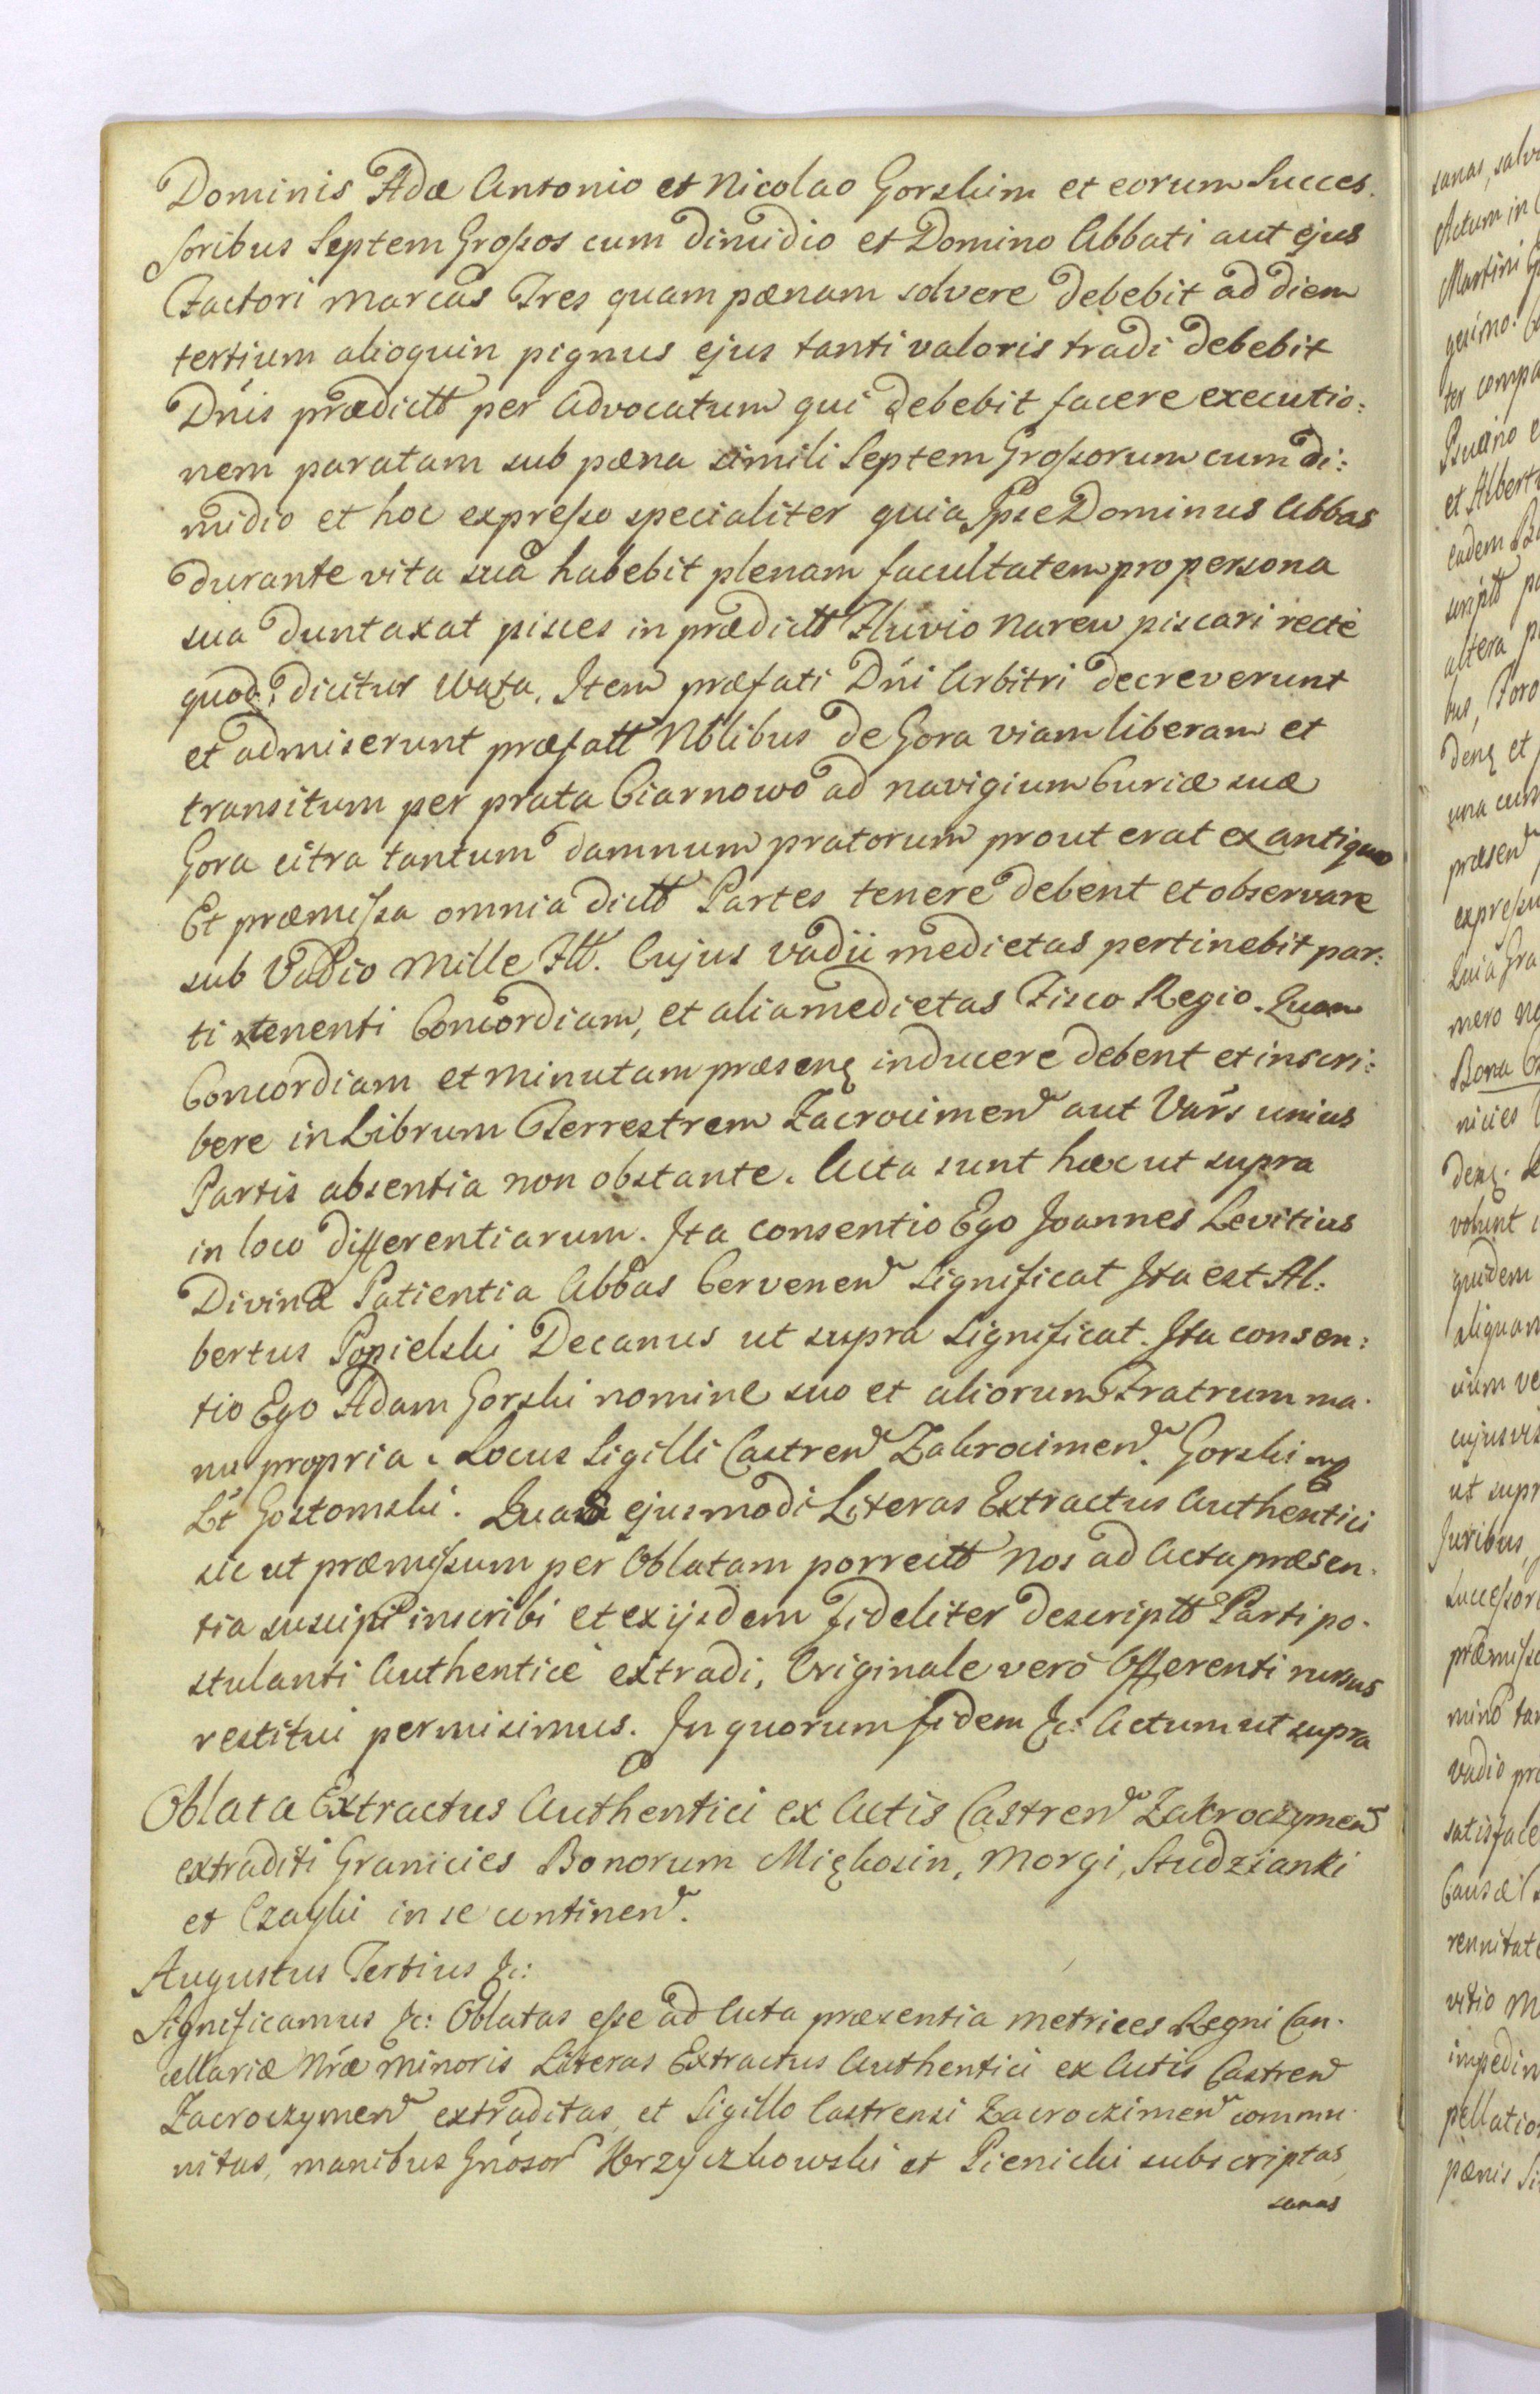 Dominis Adæ Antonio et Nicolao Gorskim et eorum Succes.
soribus Septem Groszos cum dimidio et Domino Abbati aut ejus
Factori Marcas Tres quam pœnam solvere debebit ad diem
tertium alioquin pignus ejus tanti valoris tradi debebit
Dnis prædictt per Advocatum qui debebit facere executio:
nem paratam sub pœna simili Septem Groszorum cum di:
midio et hoc expresso specialiter quia Ipse Dominus Abbas
durante vita sua habebit plenam facultatem pro persona
sua duntaxat pisces in prædictt Fluvio Narew piscari recte
quodq; dicitur Waza. Item præfati Dni Arbitri decreverunt
et admiserunt præfatt Nblibus de Gora viam liberam et
transitum per prata Czarnowo ad navigium Curiæ suæ
Gora citra tantum damnum pratorum prout erat ex antiquo
Et præmissa omnia dictt Partes tenere debent et observare
sub Vadio Mille Fll. Cujus vadii medietas pertinebit par:
ti tenenti Concordiam, et alia medietas Fisco Regio. Quam
Concordiam et minutam præsenq inducere debent et inscri:
bere in Librum Terrestrem Zacrocimen aut Vars unius
Partis absentia non obstante. Acta sunt hæc ut supra
in loco differentiarum. Ita consentio Ego Joannes Levitius
Divina Patientia Abbas Cervenen Significat Ita est Al:
bertus Popielski Decanus ut supra Significat. Ita consen:
tio Ego Adam Gorski nomine suo et aliorum Fratrum ma.
nu propria. Locus Sigilli Castren Zakrocimen. Gorski mp
Lt Gostomski. Quas ejusmodi Literas Extractus Authentici
sic ut præmissum per Oblatam porrectt Nos ad Acta præsen.
tia suscipi inscribi et ex ijsdem fideliter descriptt Parti po.
stulanti Authentice extradi, Originale vero Offerenti rursus
restitui permisimus. In quorum fidem &c: Actum ut supra
Oblata Extractus Authentici ex Actis Castren Zakroczymen
extraditi Granicies Bonorum Miękosin, Morgi, Studzianki
et Czayki in se continen.
Augustus Tertius &c:
Significamus &c: Oblatas esse ad Acta præsentia Metrices Regni Can.
cellariæ Nræ Minoris Literas Extractus Authentici ex Actis Castren
Zacroczymen extraditas et Sigillo Castrensi Zacroczimen commu.
nitas, manibus Gnosor Krzyczkowski et Pienicki subscriptas,
sanas